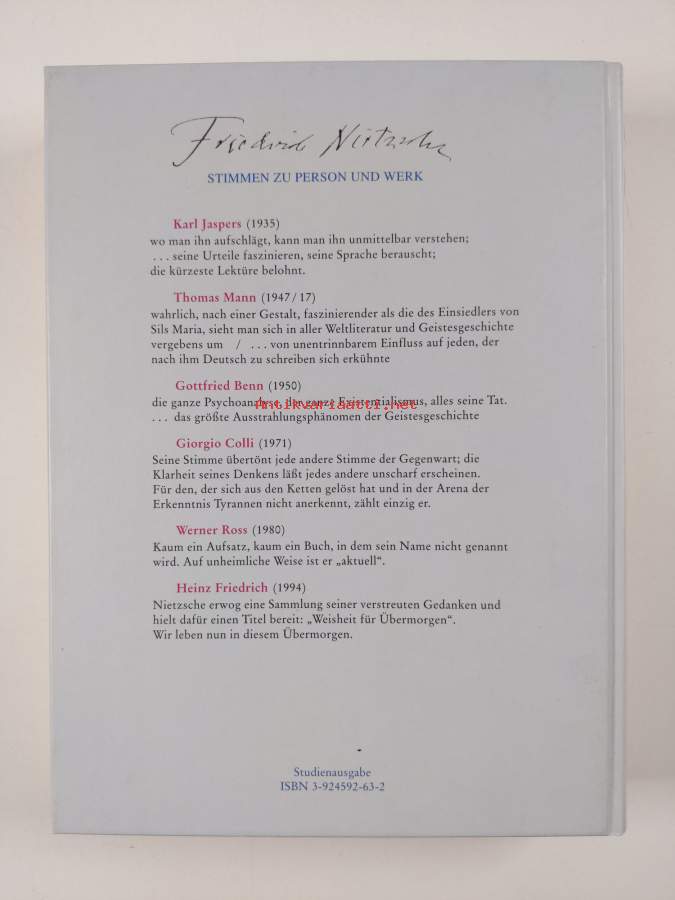 Friedrich Nietzsche
STIMMEN ZU PERSON UND WERK
Karl Jaspers (1935)
wo man ihn aufschlägt, kann man ihn unmittelbar verstehen;
... seine Urteile faszinieren, seine Sprache berauscht;
die kürzeste Lektüre belohnt.
Thomas Mann (1947/17)
wahrlich, nach einer Gestalt, faszinierender als die des Einsiedlers von
Sils Maria, sieht man sich in aller Weltliteratur und Geistesgeschichte
vergebens um / ... von unentrinnbarem Einfluss auf jeden, der
nach ihm Deutsch zu schreiben sich erkühnte
Gottfried Benn (1950)
die ganze Psychoanalyse, der ganze Existentialismus, alles seine Tat.
Antikvariaatti.net
... das größte Ausstrahlungsphänomen der Geistesgeschichte
Giorgio Colli (1971)
Seine Stimme übertönt jede andere Stimme der Gegenwart; die
Klarheit seines Denkens läßt jedes andere unscharf erscheinen.
Für den, der sich aus den Ketten gelöst hat und in der Arena der
Erkenntnis Tyrannen nicht anerkennt, zählt einzig er.
Werner Ross (1980)
Kaum ein Aufsatz, kaum ein Buch, in dem sein Name nicht genannt
wird. Auf unheimliche Weise ist er „aktuell“.
Heinz Friedrich (1994)
Nietzsche erwog eine Sammlung seiner verstreuten Gedanken und
hielt dafür einen Titel bereit: „Weisheit für Übermorgen“.
Wir leben nun in diesem Übermorgen.
Studienausgabe
ISBN 3-924592-63-2